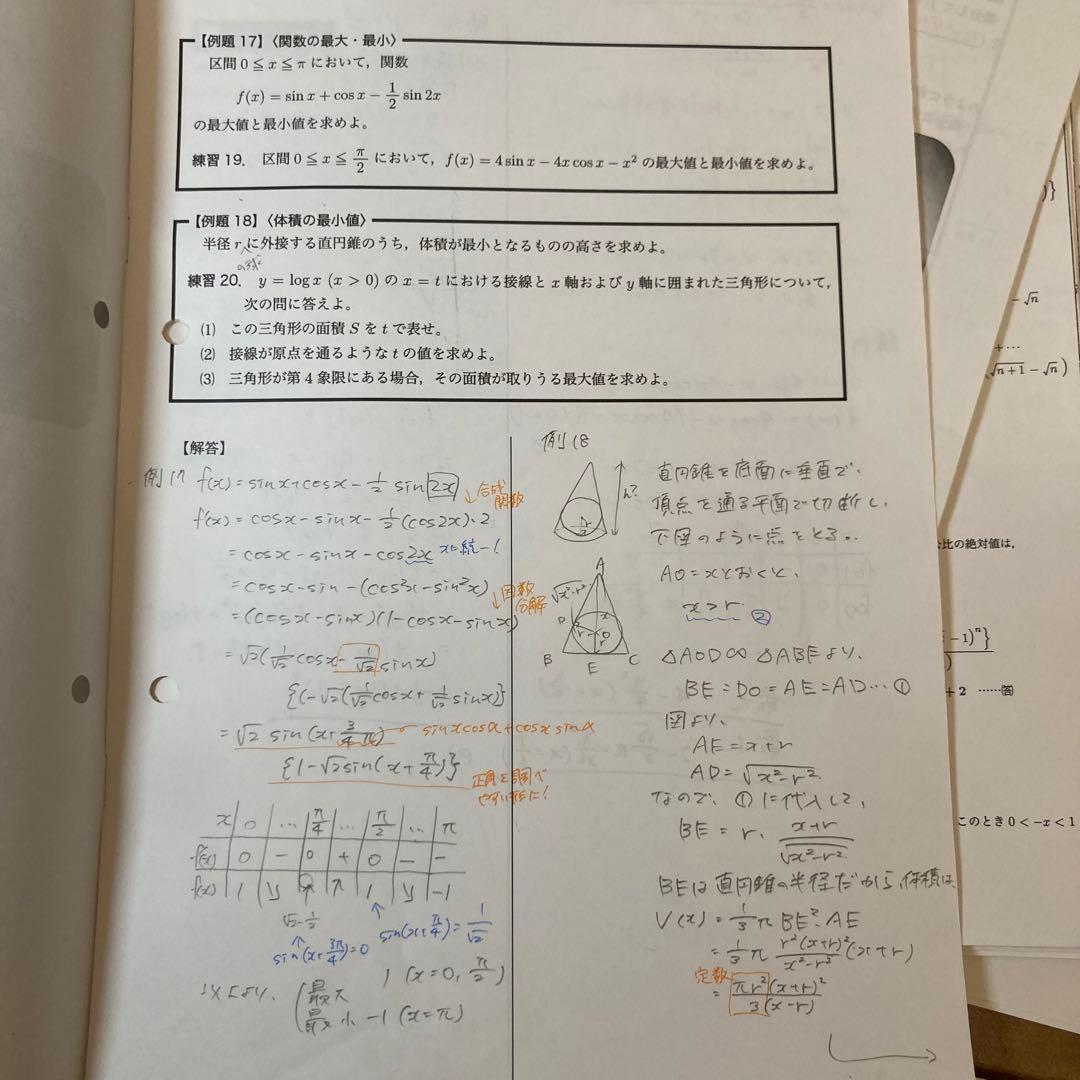 【例題 17】〈関数の最大・最小〉
区間 0 ≦ x ≦ π において，関数
f(x) = sin x + cos x − 1/2 sin 2x
の最大値と最小値を求めよ。
練習 19. 区間 0 ≦ x ≦ π/2 において，f(x) = 4 sin x − 4x cos x − x² の最大値と最小値を求めよ。
【例題 18】〈体積の最小値〉
半径 r に外接する直円錐のうち，体積が最小となるものの高さを求めよ。
の球
練習 20. y = log x (x > 0) の x = t における接線と x 軸および y 軸に囲まれた三角形について，
次の問に答えよ。
(1) この三角形の面積 S を t で表せ。
(2) 接線が原点を通るような t の値を求めよ。
(3) 三角形が第 4 象限にある場合，その面積が取りうる最大値を求めよ。
【解答】
例17 f(x) = sinx+cosx − 1/2 sin 2x
↓合成関数
f'(x) = cosx − sinx − 1/2 (cos2x)・2
= cosx − sinx − cos2x xに統一!
= cosx − sin − (cos²x − sin²x)
↓因数分解
= (cosx − sinx)(1 − cosx − sinx)
= √2(1/√2 cosx − 1/√2 sinx)
{(−√2(1/√2 cosx + 1/√2 sinx)}
= √2 sin(x + 3/4 π) sinxcosα + cosx sinα
{1 − √2 sin(x + π/4)}
正負を調べやすい形に!
x 0 … π/4 … π/2 … π
f'(x) 0 − 0 + 0 − −
f(x) 1 ↘ ↗ 1 ↘ −1
√2 − 1/2
↑ sin(x + 3π/4) = 0
↑ sin(x + π/4) = 1/√2
以上より、
最大 1 (x = 0, π/2)
最小 −1 (x = π)
例18
h?
r
A
√x²−r²
D
x
r
O
r
B E C
直円錐を底面に垂直で、
頂点を通る平面で切断し、
下図のように点をとる。
AO = xとおくと、
x > r ②
△AOD∽△ABEより、
BE = DO = AE = AD … ①
図より、
AE = x + r
AD = √x² − r²
なので、①に代入して、
BE = r・(x+r)/√x²−r²
BEは直円錐の半径だから、体積は、
V(x) = 1/3 π BE²・AE
= 1/3 π r²(x+r)²/(x²−r²) (x+r)
定数
= πr²(x+r)²/3(x−r)
− √n
+ ⋯
√n+1 − √n)
公比の絶対値は，
−1)ⁿ}
+ 2 ……答
このとき 0 < −x < 1